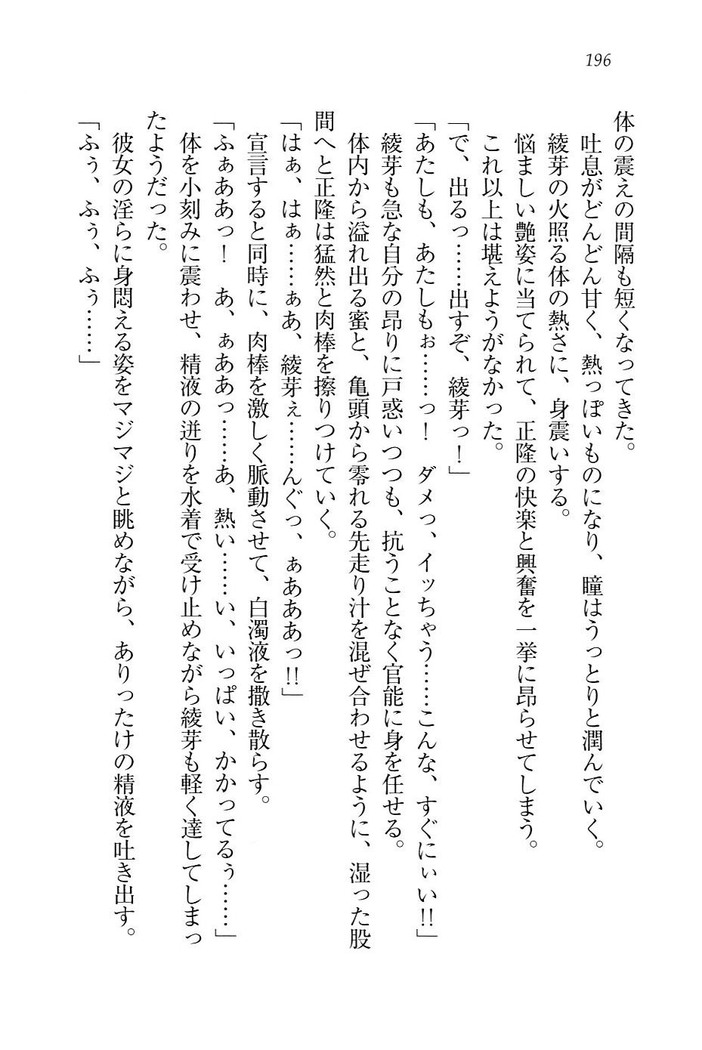 196
体の震えの間隔も短くなってきた。
吐息がどんどん甘く、熱っぽいものになり、瞳はうっとりと潤んでいく。
綾芽の火照る体の熱さに、身震いする。
悩ましい艶姿に当てられて、正隆の快楽と興奮を一挙に昂らせてしまう。
これ以上は堪えようがなかった。
「で、出るっ……出すぞ、綾芽っ！」
「あたしも、あたしもぉ……っ！　ダメっ、イッちゃう……こんな、すぐにぃい!!」
綾芽も急な自分の昂りに戸惑いつつも、抗うことなく官能に身を任せる。
体内から溢れ出る蜜と、亀頭から零れる先走り汁を混ぜ合わせるように、湿った股
間へと正隆は猛然と肉棒を擦りつけていく。
「はぁ、はぁ……ぁあ、綾芽ぇ……んぐっ、ぁあああっ!!」
宣言すると同時に、肉棒を激しく脈動させて、白濁液を撒き散らす。
「ふぁああっ！　あ、ぁああっ……あ、熱い……い、いっぱい、かかってるぅ……」
体を小刻みに震わせ、精液の迸りを水着で受け止めながら綾芽も軽く達してしまっ
たようだった。
彼女の淫らに身悶える姿をマジマジと眺めながら、ありったけの精液を吐き出す。
「ふぅ、ふぅ、ふぅ……」